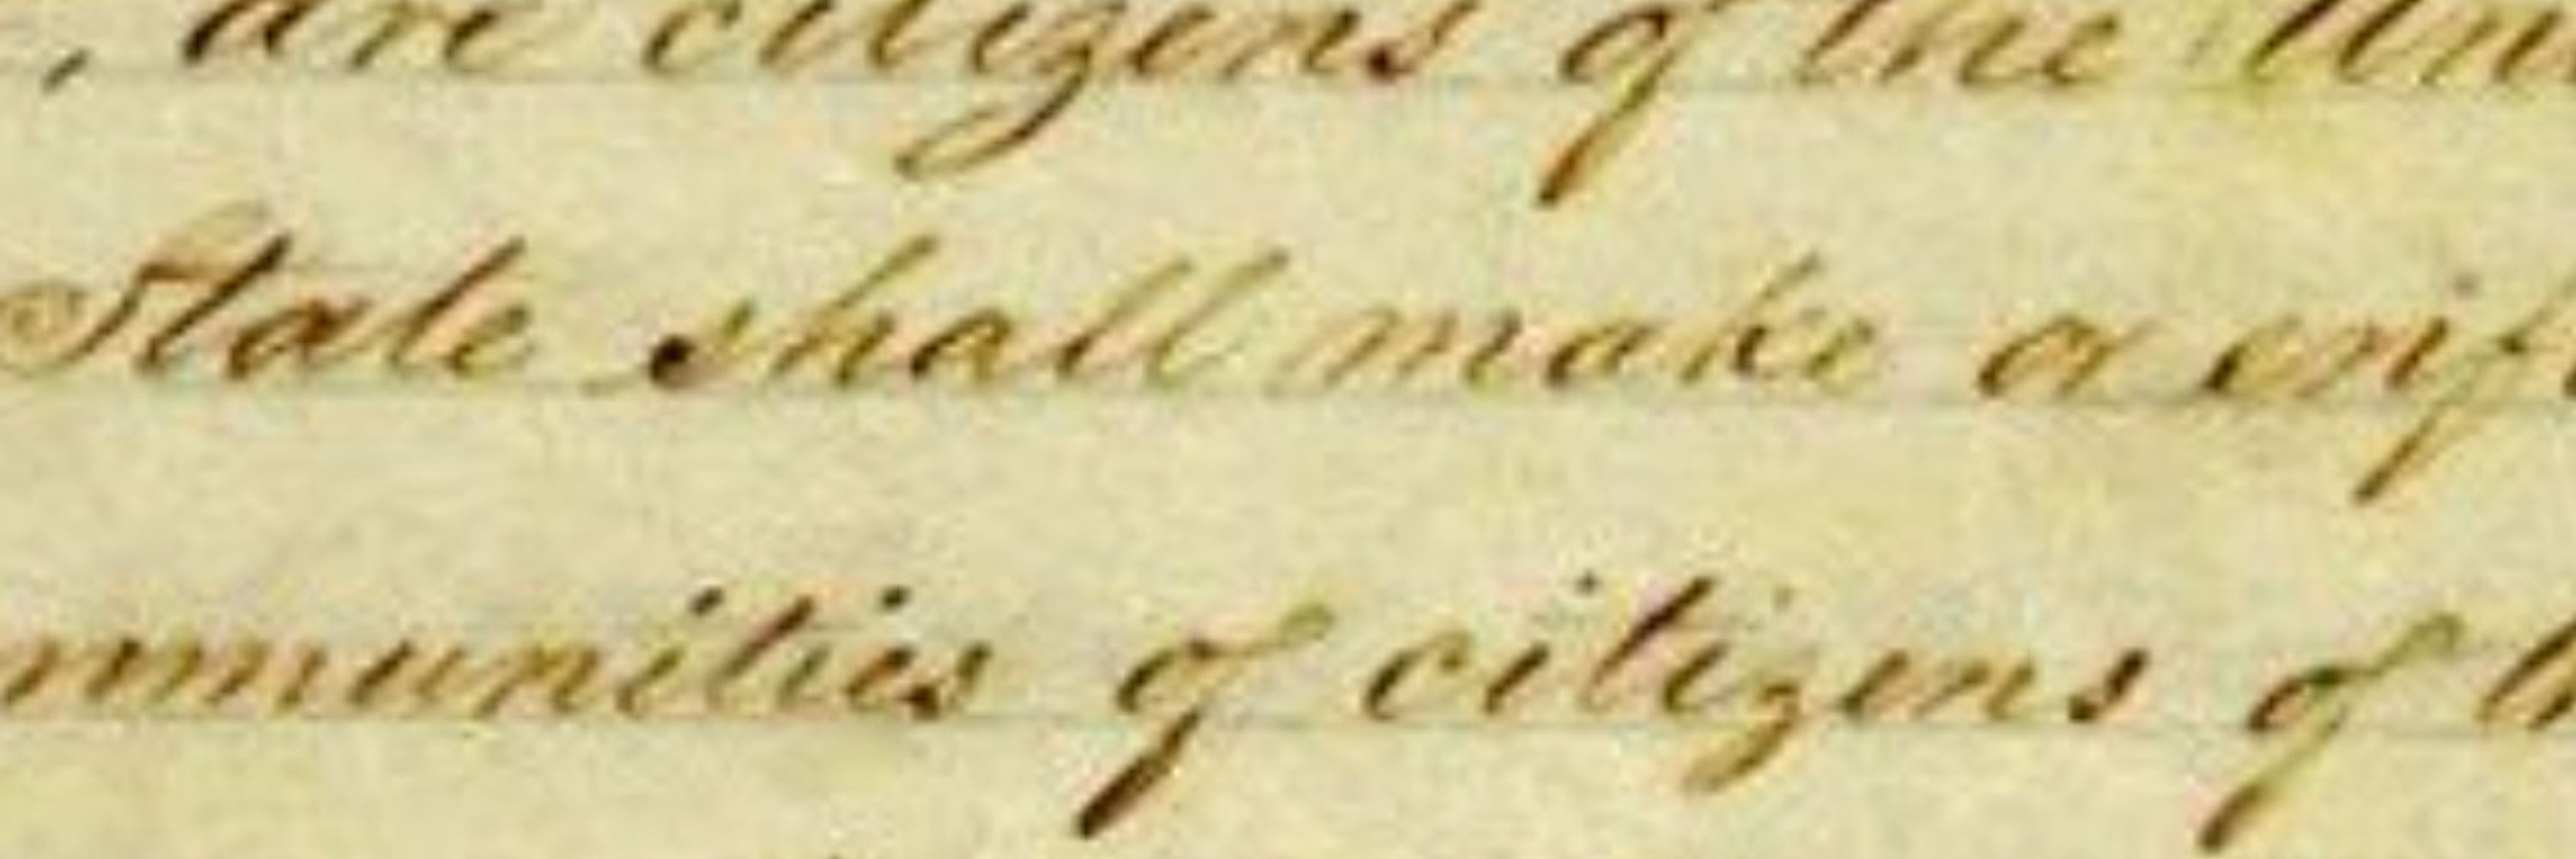 , are citizens of the Un
State shall make or enf
mmunities of citizens of t